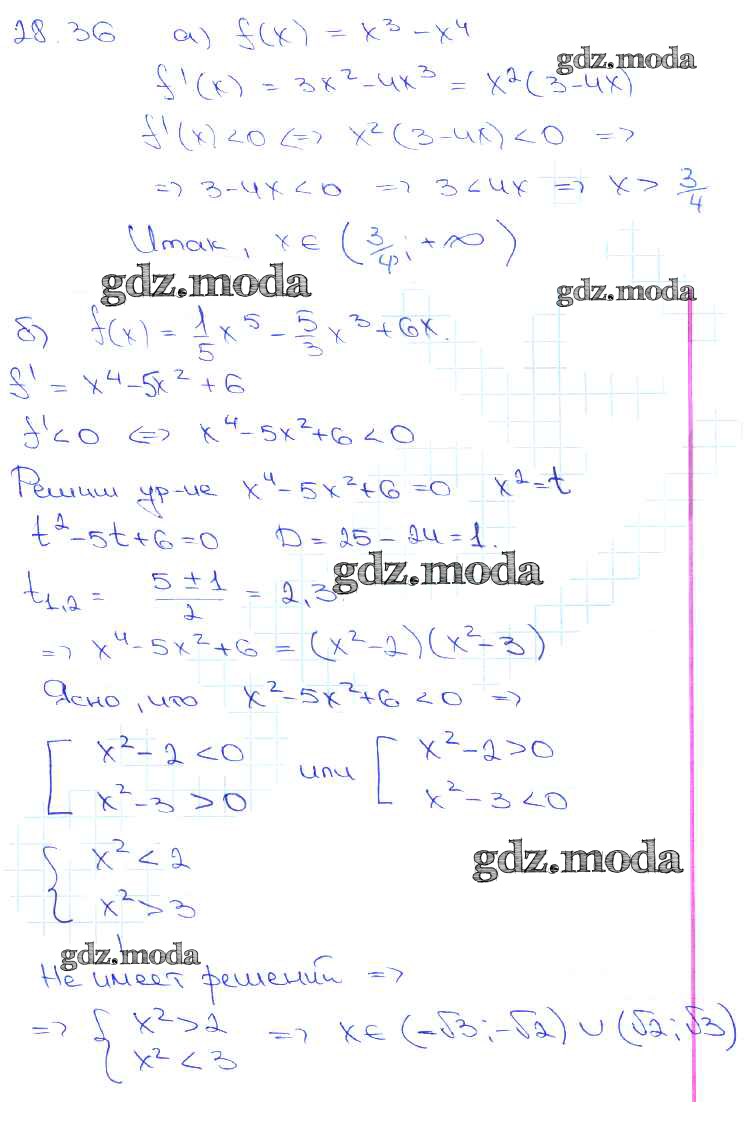 28.36 а) f(x) = x³ – x⁴
gdz.moda
f'(x) = 3x² – 4x³ = x²(3 – 4x)
f'(x) < 0 <=> x²(3 – 4x) < 0 =>
=> 3 – 4x < 0 => 3 < 4x => x > 3/4
Итак, x ∈ (3/4; +∞)
gdz.moda
gdz.moda
б) f(x) = 1/5 x⁵ – 5/3 x³ + 6x.
f' = x⁴ – 5x² + 6
f' < 0 <=> x⁴ – 5x² + 6 < 0
Решим ур-ие x⁴ – 5x² + 6 = 0 x² = t
t² – 5t + 6 = 0 D = 25 – 24 = 1.
gdz.moda
t₁,₂ = (5 ± 1)/2 = 2, 3
=> x⁴ – 5x² + 6 = (x² – 2)(x² – 3)
Ясно, что x² – 5x² + 6 < 0 =>
[ x² – 2 < 0 или [ x² – 2 > 0
x² – 3 > 0 x² – 3 < 0
{ x² < 2
gdz.moda
x² > 3
gdz.moda
Не имеет решений =>
=> { x² > 2 => x ∈ (–√3; –√2) ∪ (√2; √3)
x² < 3